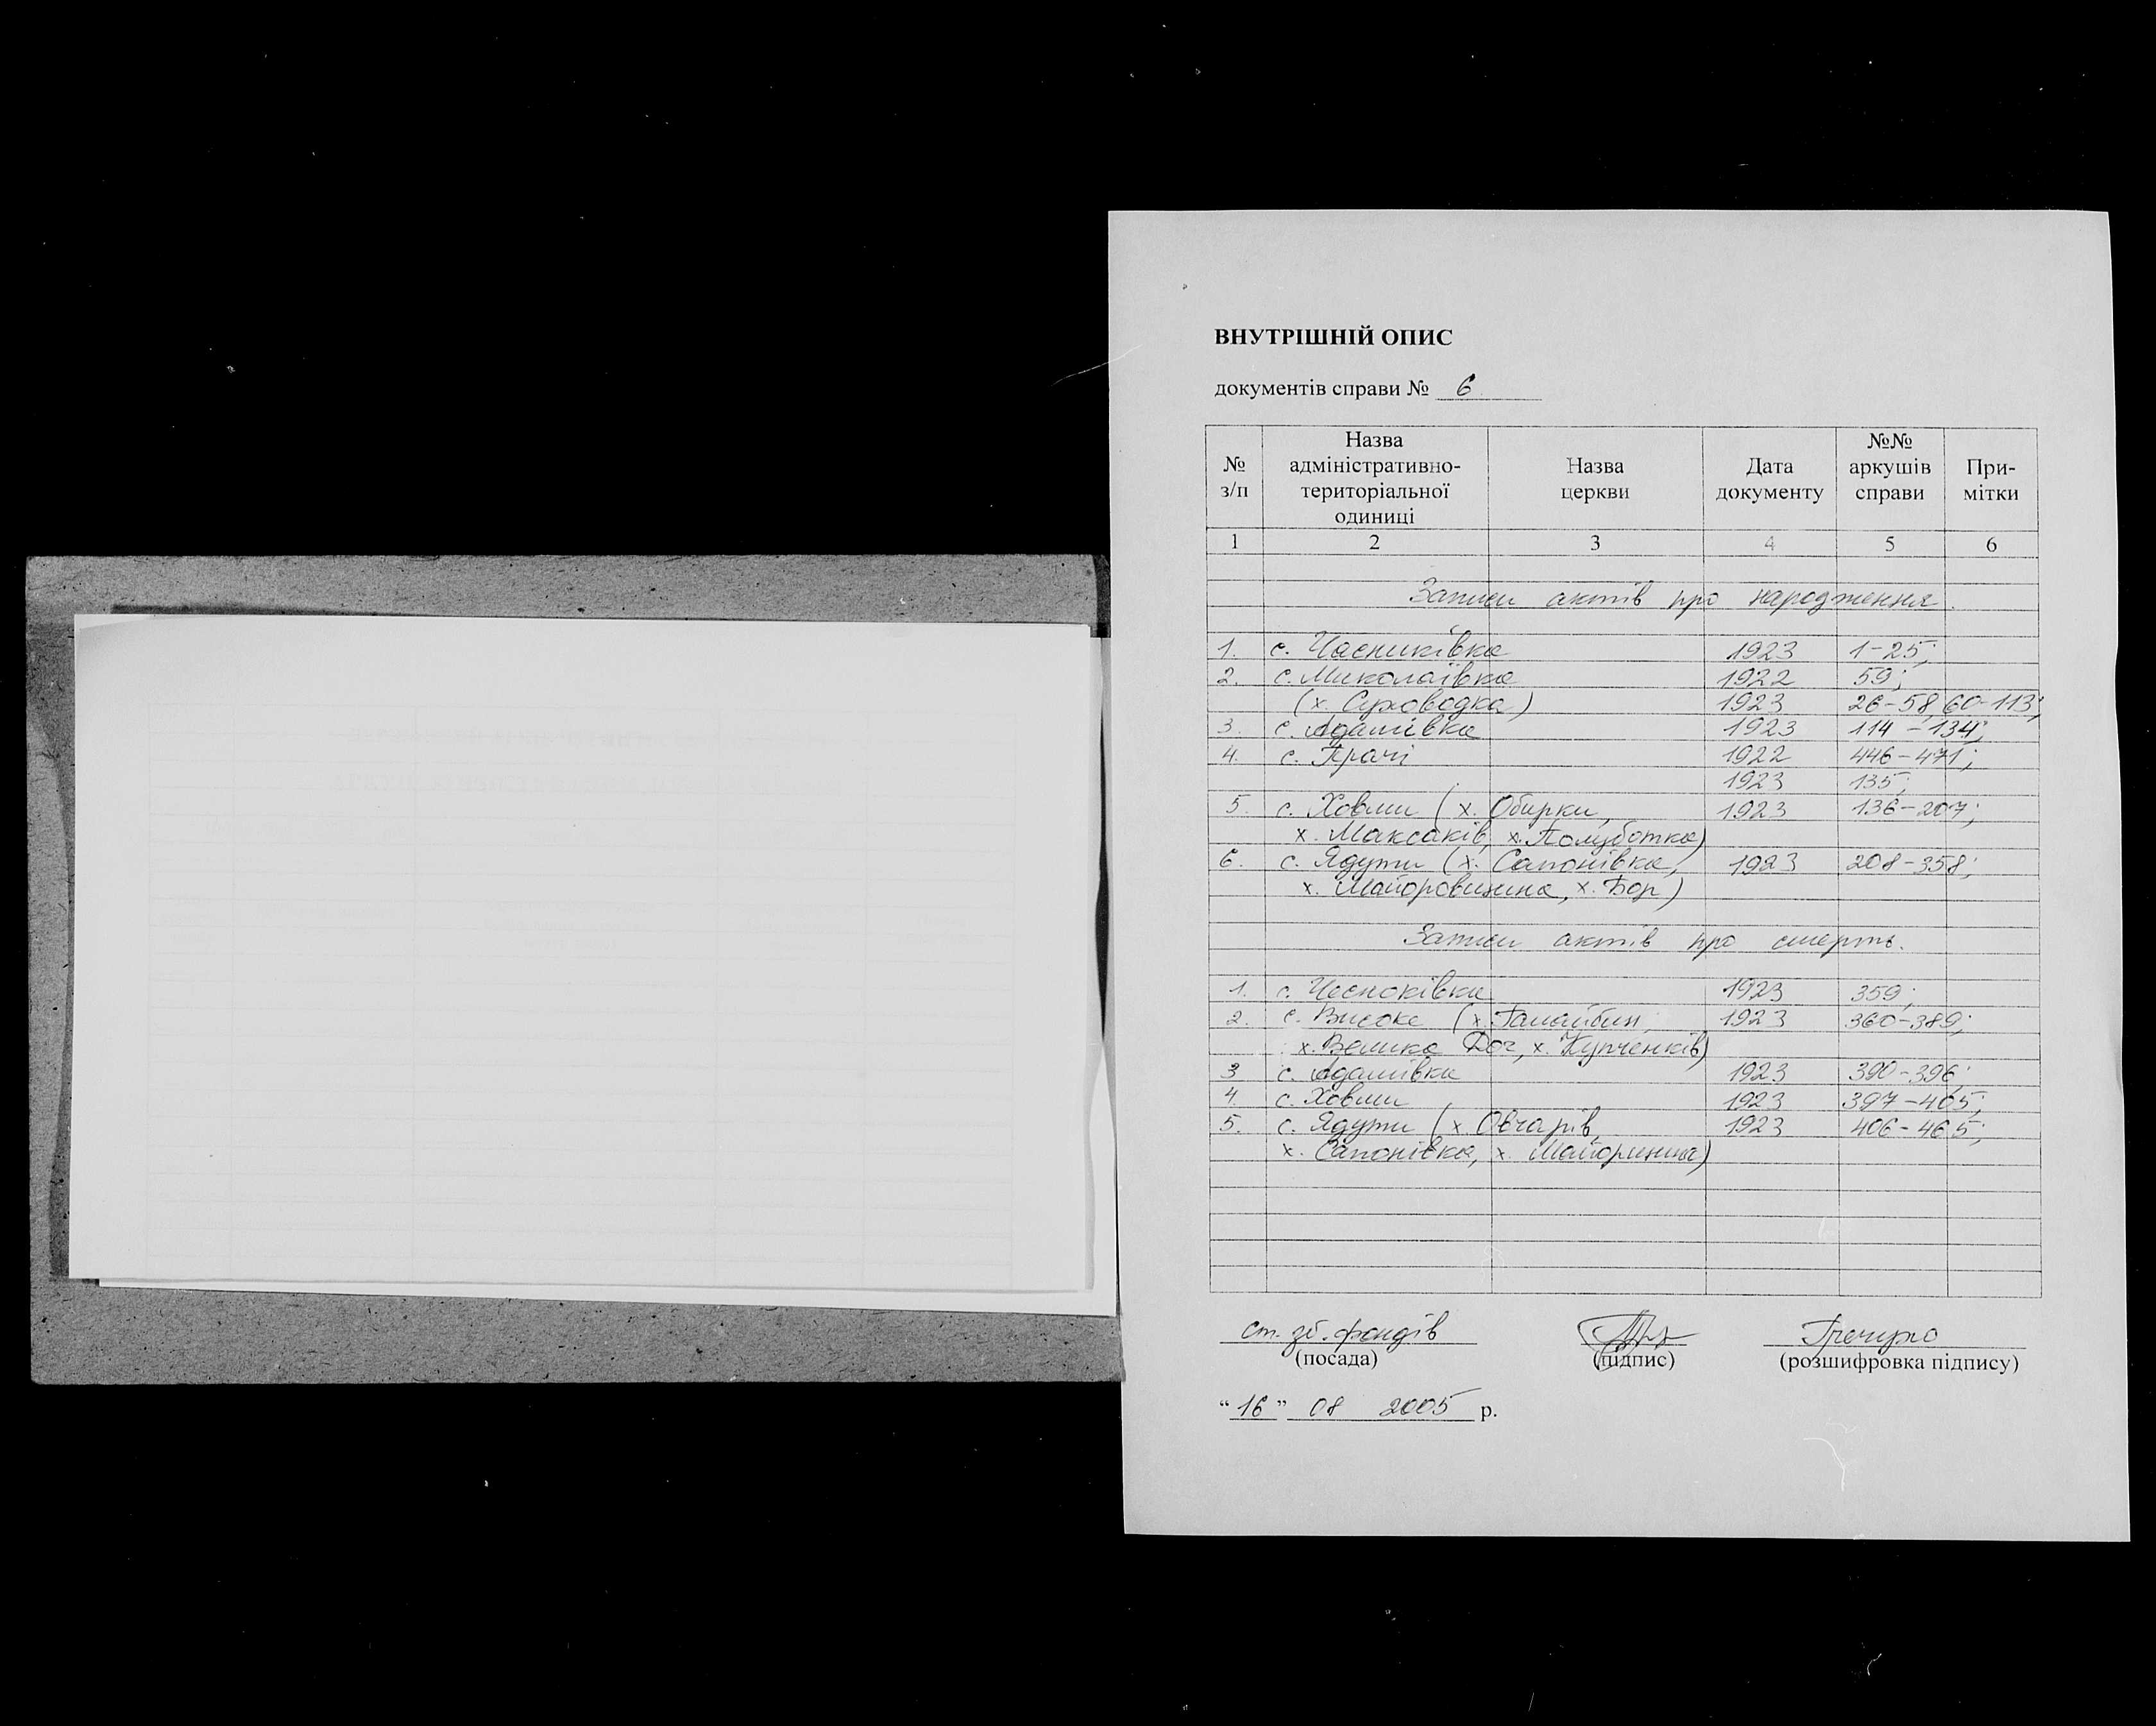 ВНУТРІШНІЙ ОПИС
документів справи № 6
№ з/п | Назва адміністративно-територіальної одиниці | Назва церкви | Дата документу | №№ аркушів справи | При-мітки
1 | 2 | 3 | 4 | 5 | 6
Записи актів про народження.
1. с. Часниківка 1923 1-25;
2. с. Миколаївка 1922 59;
(х. Суховодка) 1923 26-58, 60-113;
3. с. Адамівка 1923 114-134;
4. с. Прачі 1922 446-471;
1923 135;
5. с. Ховми (х. Обирки, 1923 136-207;
х. Максаків, х. Полуботка)
6. с. Ядути (х. Сапонівка, 1923 208-358;
х. Майоровщина, х. Бор)
Записи актів про смерть.
1. с. Чесноківка 1923 359;
2. с. Високе (х. 1923 360-389;
х. Велика Доч, х. Купченків)
3 с. Адамівка 1923 390-396;
4. с. Ховми 1923 397-405;
5. с. Ядути (х Овчарів, 1923 406-465;
х. Сапонівка, х. Майорщина)
ст. зб. фондів
(посада) (підпис) (розшифровка підпису)
“16” 08 2005 р.